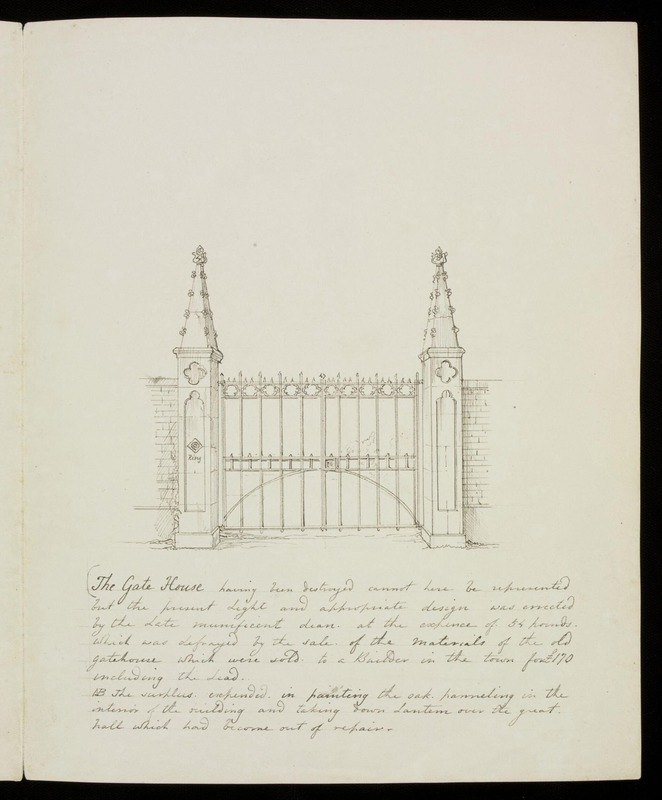 Ring
The Gate House having been destroyed cannot here be represented
but the present light and appropriate design was erected
by the late munificent dean. at the expence of 54 pounds.
which was defrayed by the sale of the materials of the old
gatehouse which were sold to a Builder in the town for £170
including the Lead.
NB The surplus expended in painting the oak panneling in the
interior of the building and taking down Lantern over the great
hall which had become out of repair.